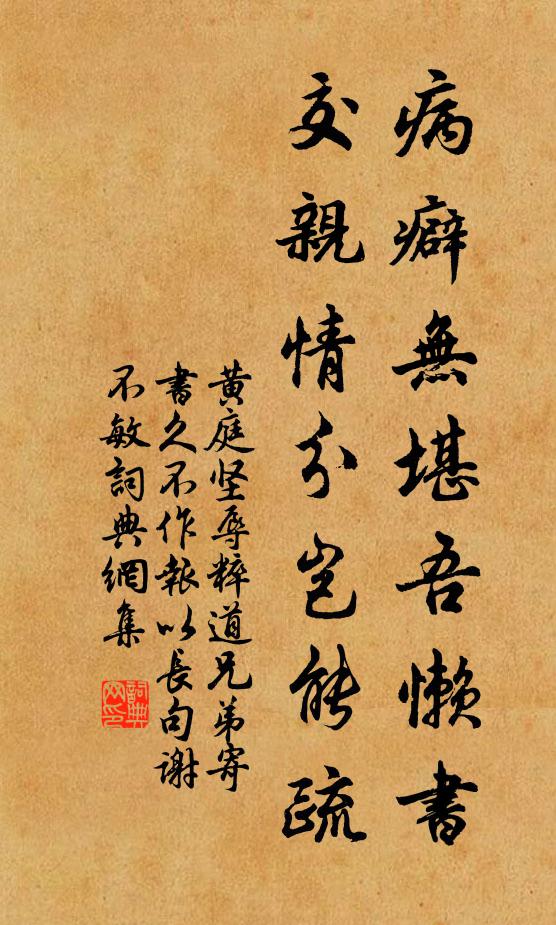 病癖無堪吾懶書
交親情分豈能疏
黄庭坚辱粹道兄弟寄
書久不作報以長句謝
不敏詞典網集
詞典網印